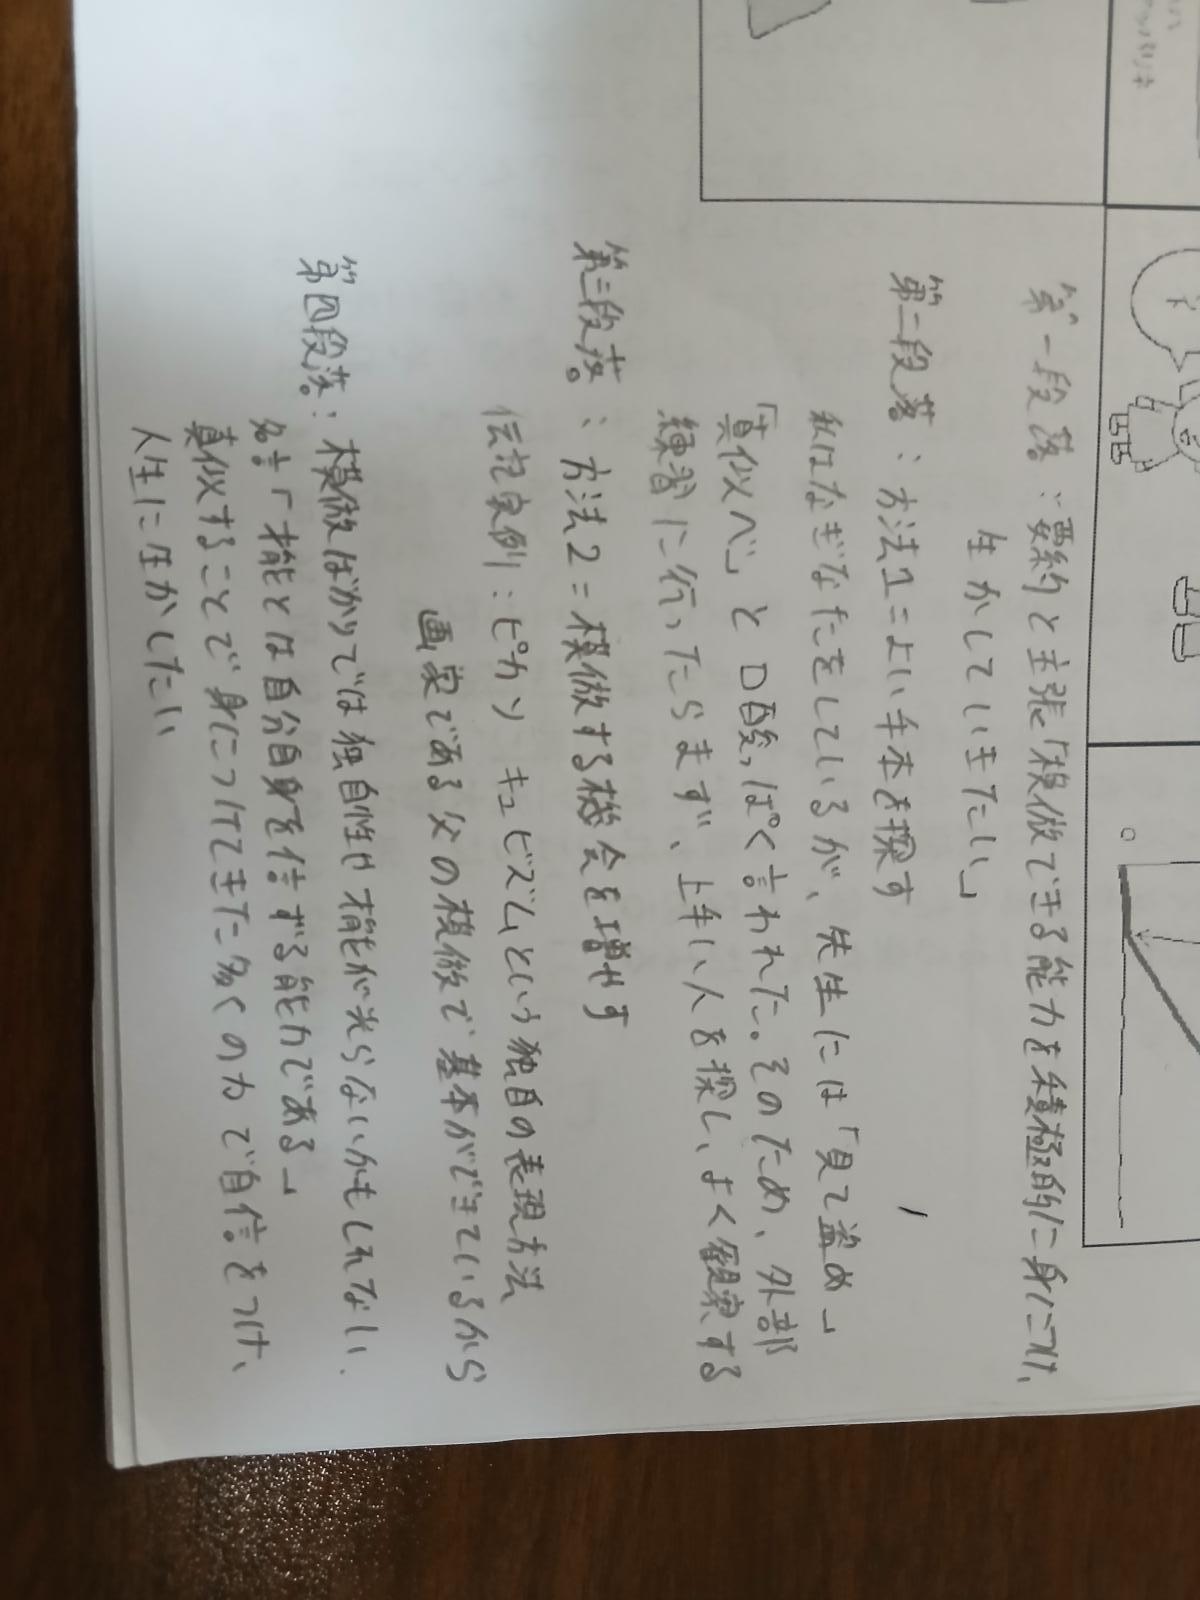 第一段落：要約と主張「模倣できる能力を積極的に身につけ、
生かしていきたい」
第二段落：方法1＝よい手本を探す
私はなぎなたをしているが、先生には「見て盗め」
「真似べ」と口酸っぱく言われた。そのため、外部
練習に行ったらまず、上手い人を探し、よく観察する
第三段落。：方法2＝模倣する機会を増やす
伝記実例：ピカソ キュビズムという独自の表現方法
画家である父の模倣で基本ができているから
第四段落。：模倣ばかりでは独自性や才能が光らないかもしれない.
名言「才能とは自分自身を信ずる能力である」
真似することで身につけてきた多くの力で自信をつけ、
人生に生かしたい